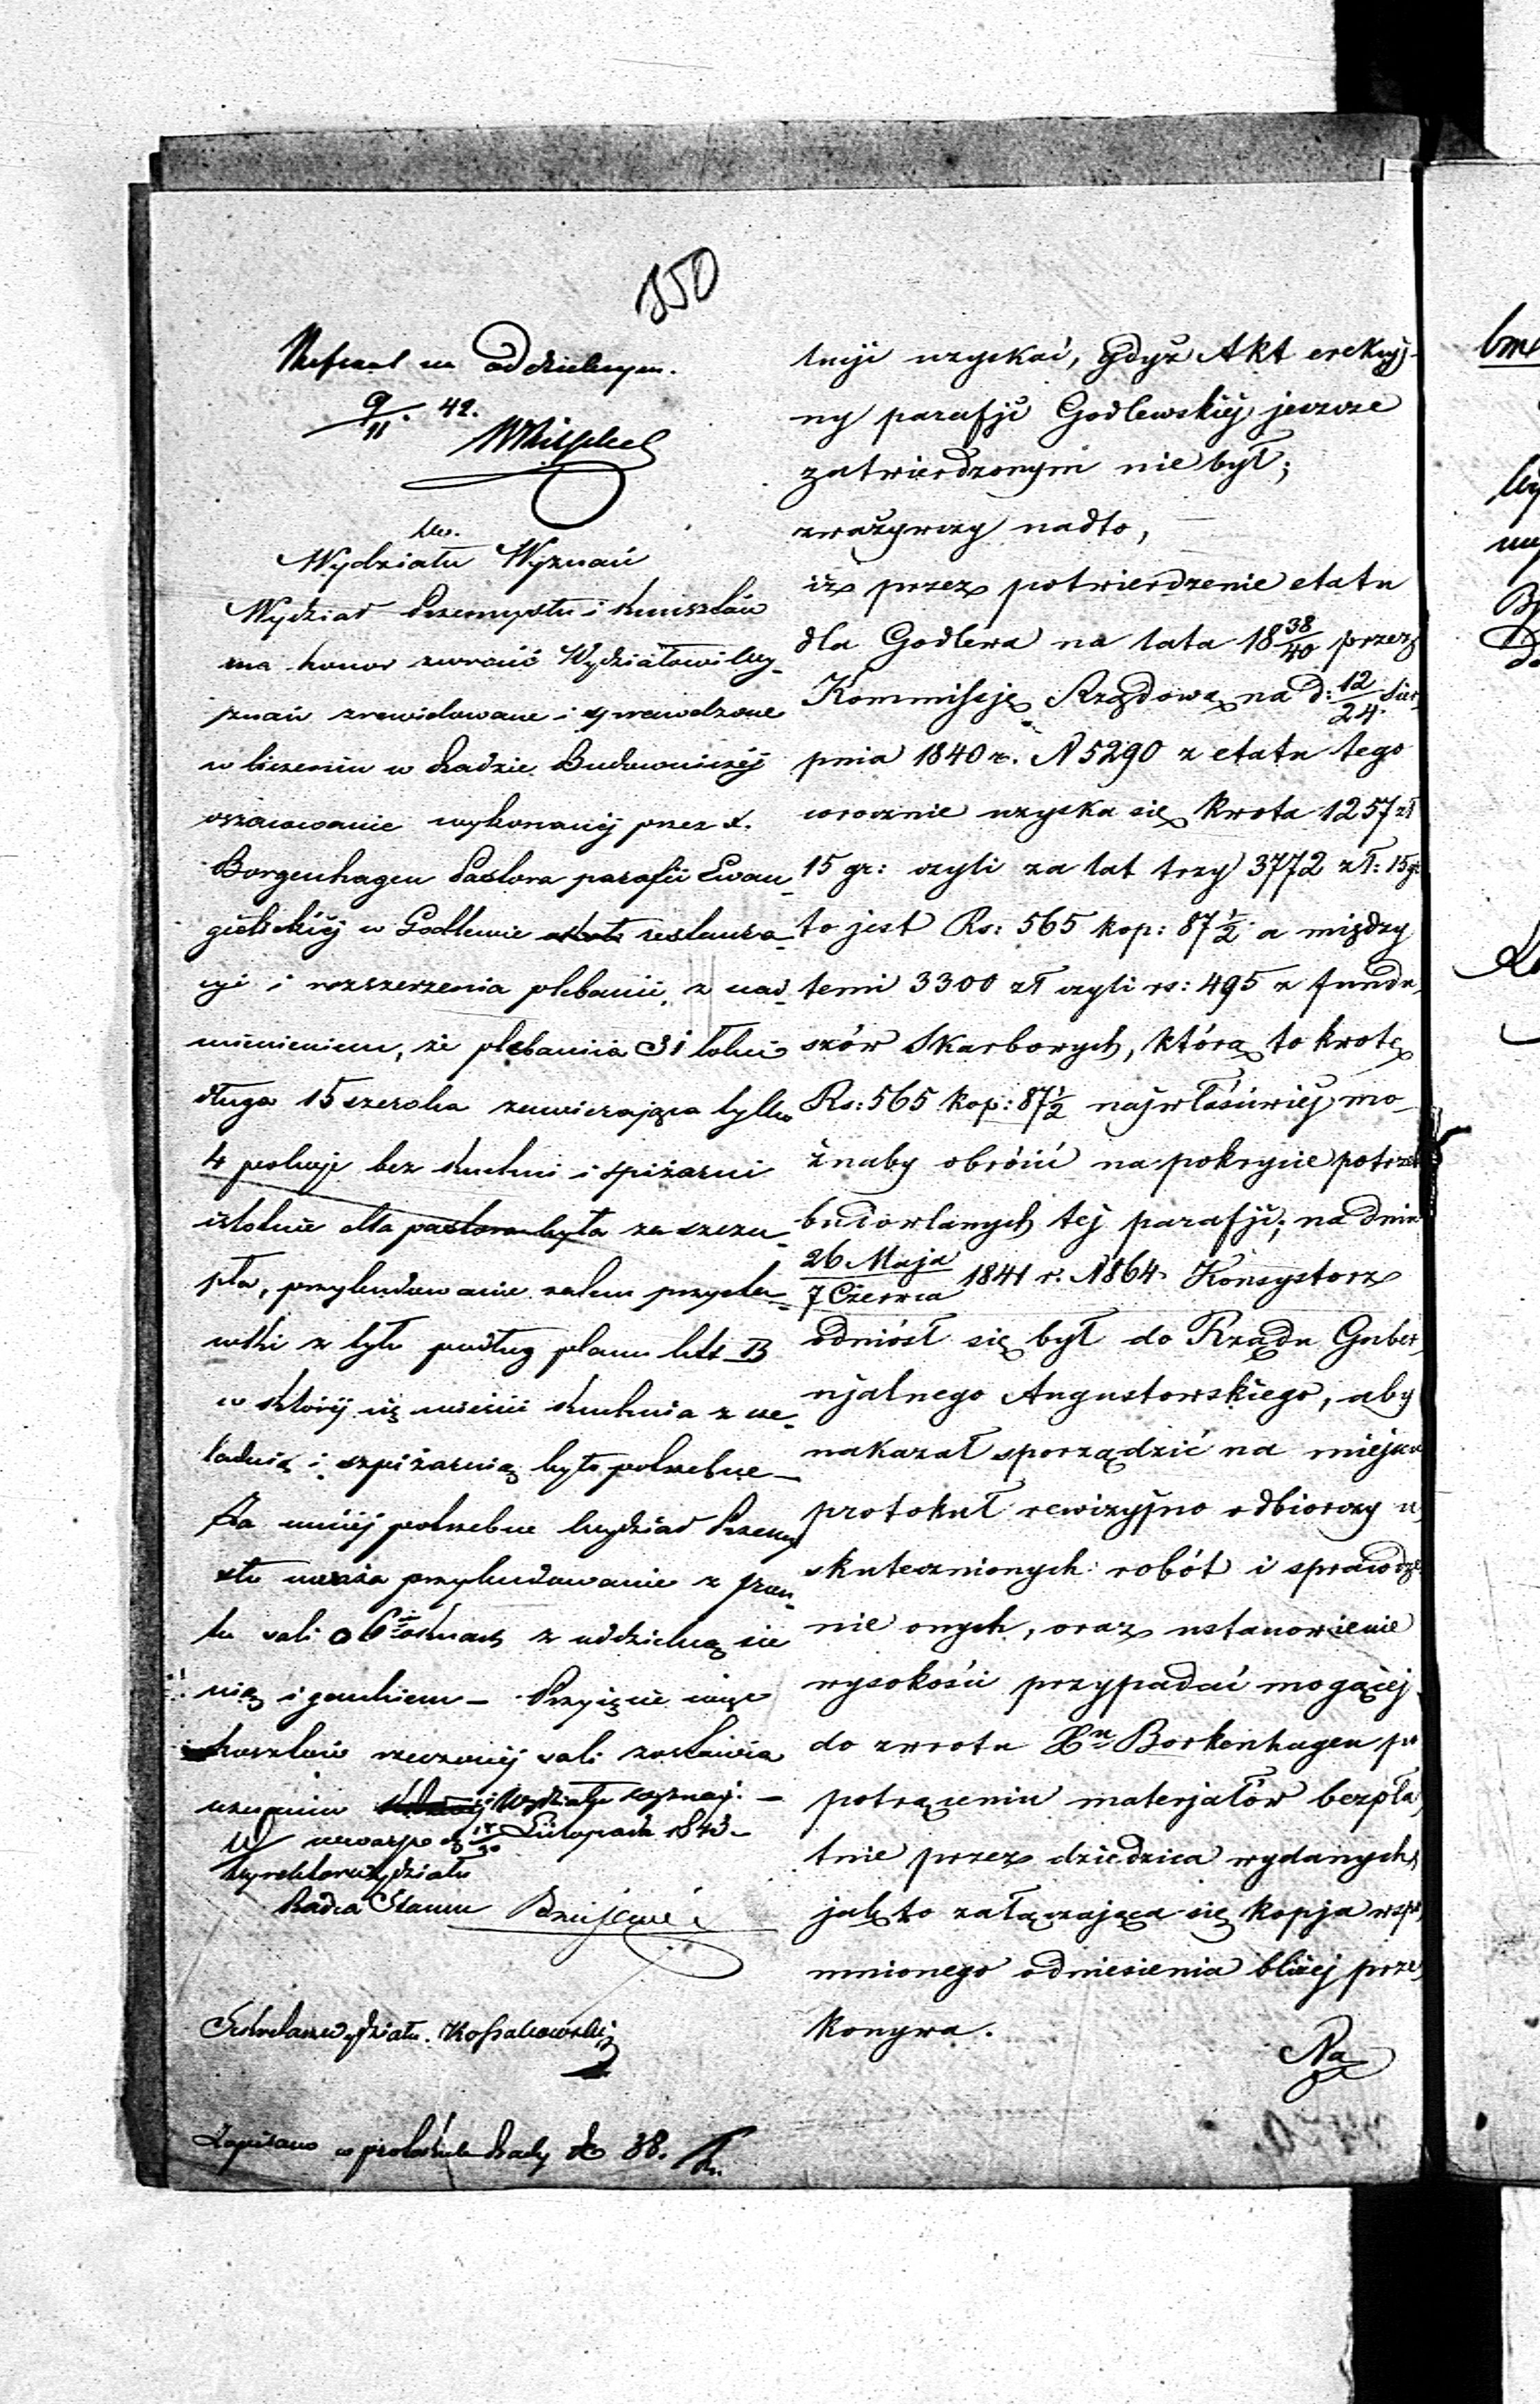 150
Referat na oddzielnym.
9/11. 42.
do.
Wydziału Wyznań
Wydział Przemysłu i Kunsztów
ma honor zwrócić Wydziałowi Wy-
znań zrewidowane i sprawdzone
w liczeniu w Radzie Budowniczéj
oszacowanie wykonanéj przez X.
Borgenhagen Pastora parafii Ewan-
gielickiéj w Godlewie restaura-
cyi i rozszerzenia plebanii, z nad-
mienieniem, że plebania 31 łokci
długa 15 szeroka zawierająca tylko
4 pokoje bez kuchni i spiżarni
istotnie dla pastora była za szczu-
pła, przybudowanie zatem przysta-
wki z tyłu podług planu litt B
w któréj się mieści kuchnia z cze-
ladnią i szpiżarnią było potrzebne —
Za mniéj potrzebne Wydział Przemy
słu uważa przybudowanie z fron-
tu sali o 6 oknach z oddzielną sie
nią i gankiem — Przyjęcie więc
kosztów rzeczonéj sali zostawia
uznaniu Wydziału wyznań. —
W Warszawie d 18/30 Listopada 1843 —
Dyrektor Wydziału
Radca Stanu
Sekretarz Wydziału. Kossakowski
Zapisano w protokule Rady do 38.
tucji uzyskać, gdyż Akt erekcyj-
ny parafji Godlewskiéj jeszcze
zatwierdzonym nie był;
zważywszy nadto,
iż przez potwierdzenie etatu
dla Godlewa na lata 18 38/40 przez
Kommissję Rządową na d: 12/24 Sier-
pnia 1840 r. N 5290 z etatu tego
corocznie uzyska się kwota 1257 zł
15 gr: czyli za lat trzy 3772 zł: 15 gr
to jest Rs: 565 kop: 87½ a między
temi 3300 zł czyli rs: 495 z fundu-
szów Skarbowych, którą to kwotę
Rs: 565 kop: 87½ najwłaściwiéj mo-
żnaby obrócić na pokrycie potrzeb
budowlanych téj parafji; na dniu
26 Maja/7 Czerwca 1841 r. N 864 Konsystorz
odniósł się był do Rządu Guber-
njalnego Augustowskiego, aby
nakazał sporządzić na miejscu
protokuł rewizyjno odbiorczy u-
skutecznionych robót i sprawdze-
nie onych, oraz ustanowienie
wysokości przypadać mogącéj
do zwrotu Xu Borkenhagen po
potrąceniu materjałów bezpła-
tnie przez dziedzica wydanych,
jak to załączająca się kopja wspo-
mnionego odniesienia bliżéj prze-
konywa.
Na